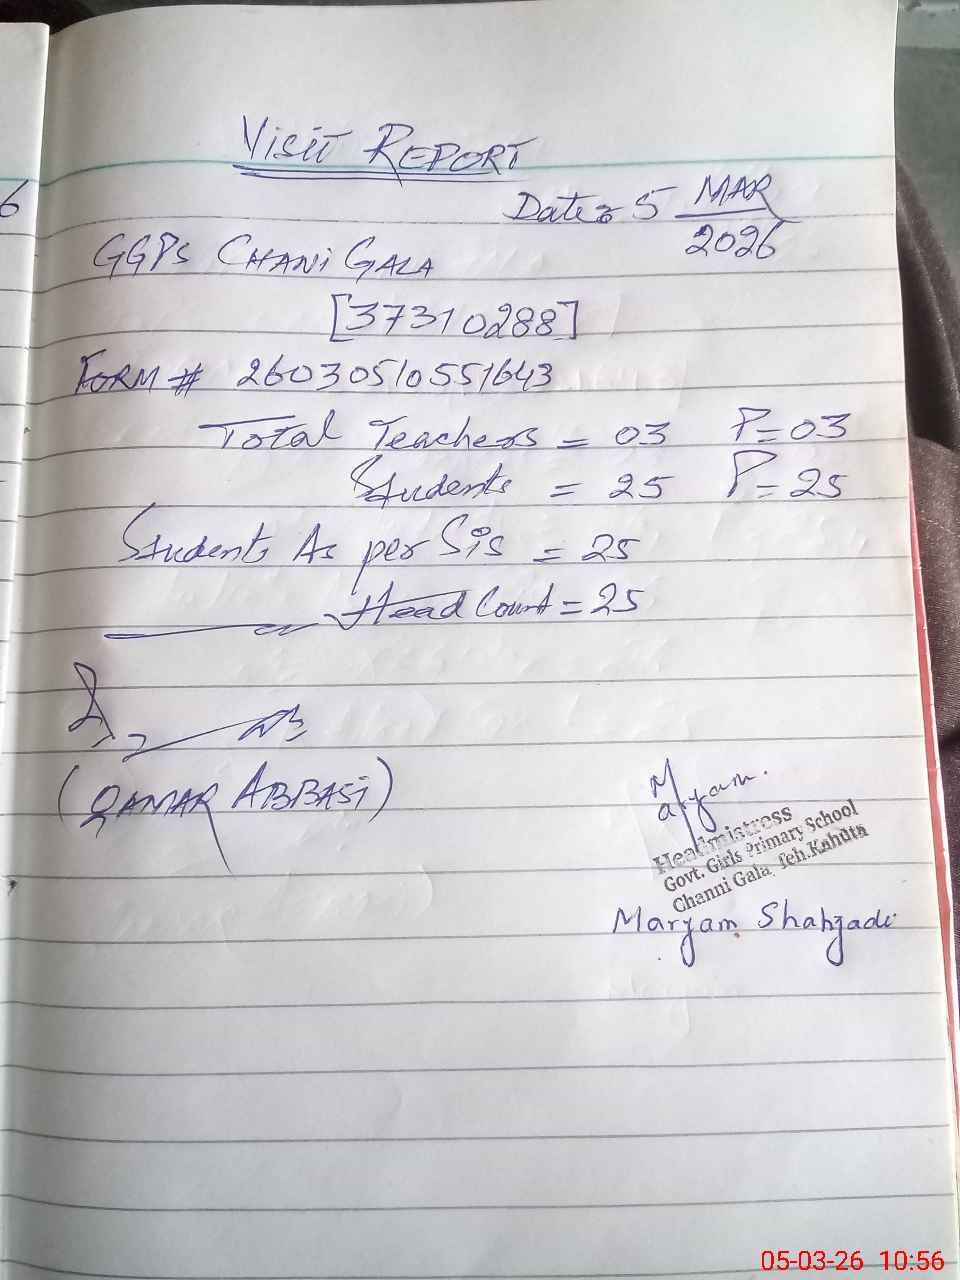 6
VISIT REPORT
Date: 5 MAR
2026
GGPS CHANI GALA
[37310288]
FORM # 26030510551643
Total Teachers = 03 P=03
Students = 25 P=25
Students As per Sis = 25
Head Count = 25
(QAMAR ABBASI)
Maryam.
Headmistress
Govt. Girls Primary School
Channi Gala, Teh.Kahuta
Maryam Shahzadi
05-03-26 10:56